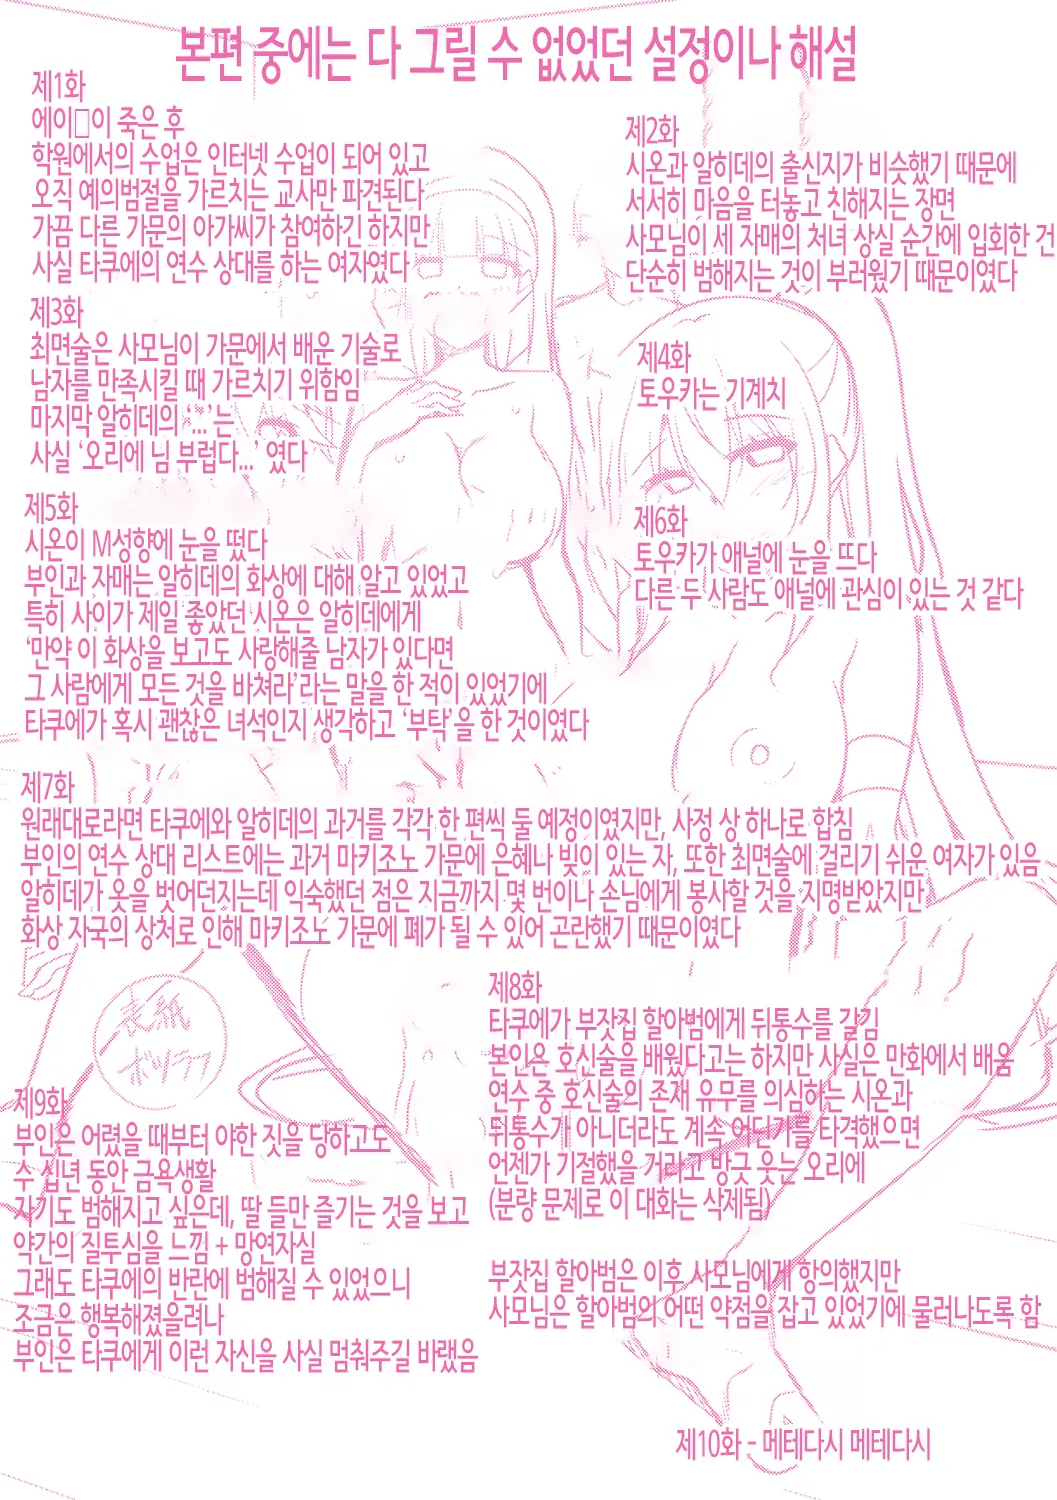 본편 중에는 다 그릴 수 없었던 설정이나 해설
제1화
에이□이 죽은 후
학원에서의 수업은 인터넷 수업이 되어 있고
오직 예의범절을 가르치는 교사만 파견된다
가끔 다른 가문의 아가씨가 참여하긴 하지만
사실 타쿠에의 연수 상대를 하는 여자였다
제2화
시온과 알히데의 출신지가 비슷했기 때문에
서서히 마음을 터놓고 친해지는 장면
사모님이 세 자매의 처녀 상실 순간에 입회한 건
단순히 범해지는 것이 부러웠기 때문이였다
제3화
최면술은 사모님이 가문에서 배운 기술로
남자를 만족시킬 때 가르치기 위함임
마지막 알히데의 ‘...’는
사실 ‘오리에 님 부럽다...’ 였다
제4화
토우카는 기계치
제5화
시온이 M성향에 눈을 떴다
부인과 자매는 알히데의 화상에 대해 알고 있었고
특히 사이가 제일 좋았던 시온은 알히데에게
‘만약 이 화상을 보고도 사랑해줄 남자가 있다면
그 사람에게 모든 것을 바쳐라’라는 말을 한 적이 있었기에
타쿠에가 혹시 괜찮은 녀석인지 생각하고 ‘부탁’을 한 것이였다
제6화
토우카가 애널에 눈을 뜨다
다른 두 사람도 애널에 관심이 있는 것 같다
제7화
원래대로라면 타쿠에와 알히데의 과거를 각각 한 편씩 둘 예정이였지만, 사정 상 하나로 합침
부인의 연수 상대 리스트에는 과거 마키조노 가문에 은혜나 빚이 있는 자, 또한 최면술에 걸리기 쉬운 여자가 있음
알히데가 옷을 벗어던지는데 익숙했던 점은 지금까지 몇 번이나 손님에게 봉사할 것을 지명받았지만
화상 자국의 상처로 인해 마키조노 가문에 폐가 될 수 있어 곤란했기 때문이였다
제8화
타쿠에가 부잣집 할아범에게 뒤통수를 갈김
본인은 호신술을 배웠다고는 하지만 사실은 만화에서 배움
연수 중 호신술의 존재 유무를 의심하는 시온과
뒤통수가 아니더라도 계속 어딘가를 타격했으면
언젠가 기절했을 거라고 방긋 웃는 오리에
(분량 문제로 이 대화는 삭제됨)
부잣집 할아범은 이후 사모님에게 항의했지만
사모님은 할아범의 어떤 약점을 잡고 있었기에 물러나도록 함
表紙
ボツラフ
제9화
부인은 어렸을 때부터 야한 짓을 당하고도
수 십년 동안 금욕생활
자기도 범해지고 싶은데, 딸 들만 즐기는 것을 보고
약간의 질투심을 느낌 + 망연자실
그래도 타쿠에의 반란에 범해질 수 있었으니
조금은 행복해졌을려나
부인은 타쿠에게 이런 자신을 사실 멈춰주길 바랬음
제10화 - 메테다시 메테다시